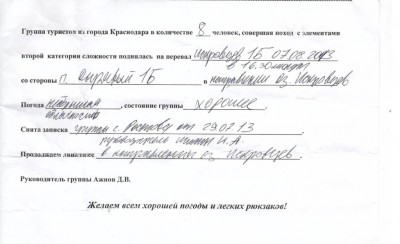 Группа туристов из города Краснодара в количестве 8 человек, совершая поход с элементами
второй категории сложности поднялась на перевал Искровцев 1Б 07.08.2013
в 16.30
со стороны п. 1Б в направлении оз. Искровцев
Погода облачность, состояние группы хорошее
Снята записка группы г. Ростова от 29.07.13
И.А.
Продолжаем движение в направлении оз. Искровцев.
Руководитель группы Ажнов Д.В.
Желаем всем хорошей погоды и легких рюкзаков!